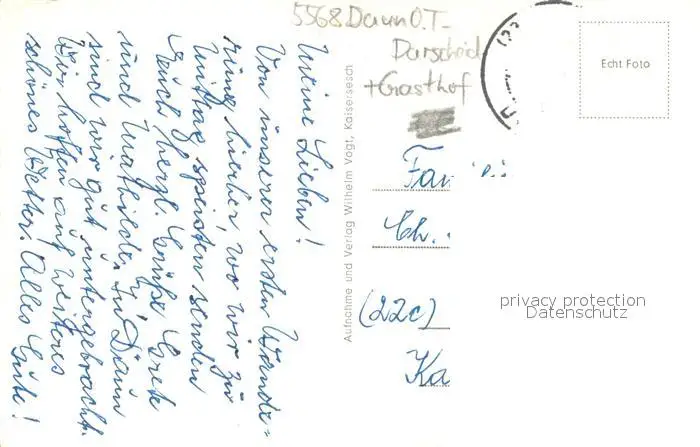 5568 Daun O.T-
Darscheid
+ Gasthof
Echt Foto
Meine Lieben!
Von unserer ersten Wande-
rung hierher, wo wir zu
Mittag speisten senden
Euch herzl. Grüße Grete
und Mathilde. In Daun
sind wir gut untergebracht.
Wir hoffen auf weiteres
schönes Wetter! Alles Gute!
Aufnahme und Verlag Wilhelm Vogt, Kaisersesch
Fam
Ch.
(22c)
Ka
privacy protection
Datenschutz